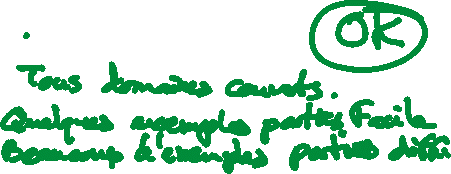 OK
Tous domaines couverts.
Quelques exemples parties Facile
Beaucoup d'exemples parties diffi